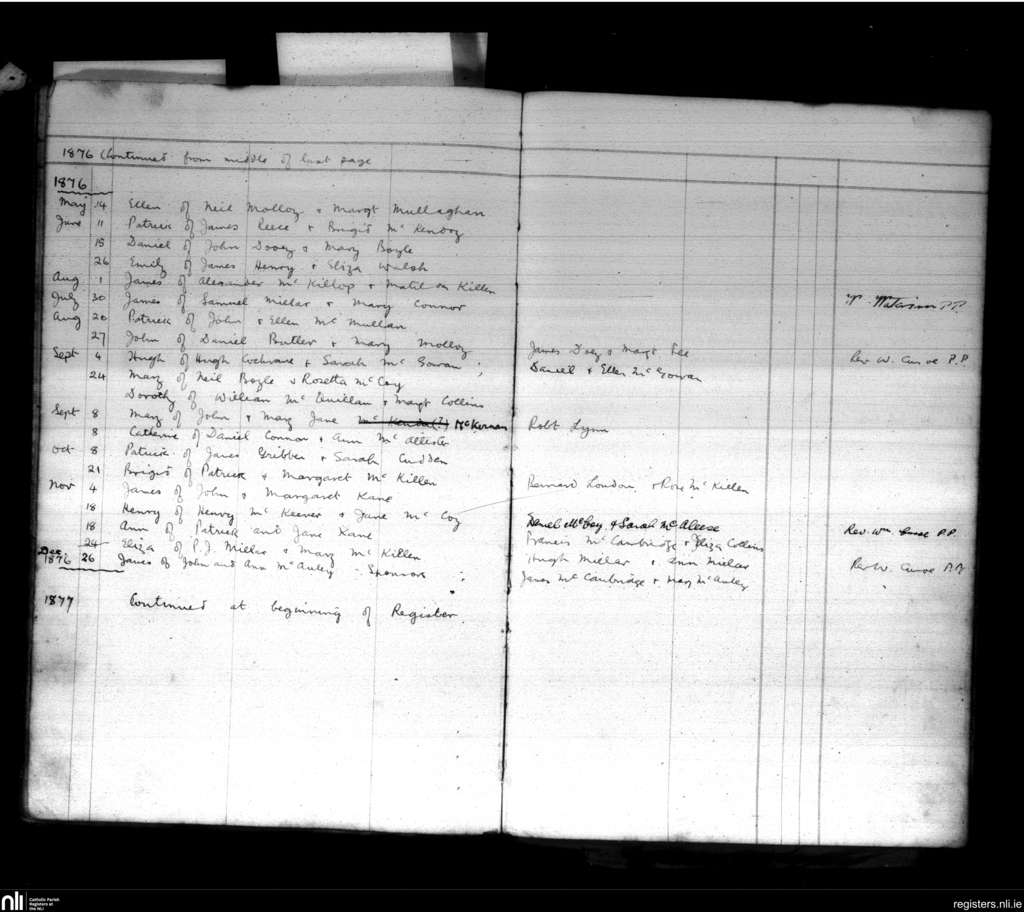 1876 Continued from middle of last page
1876
May 14 Ellen of Neil Molloy & Margt Mullaghan
June 11 Patrick of James Reece & Brigid McKendry
18 Daniel of John Dooey & Mary Boyle
26 Emily of James Henry & Eliza Walsh
Aug 1 James of Alexander McKillop & Matilda Killen
July 30 James of Samuel Millar & Mary Connor P.P.
Aug 20 Patrick of John & Ellen McMullan
27 John of Daniel Butler & Mary Molloy James & Margt Lee
Sept 4 Hugh of Hugh Cochrane & Sarah McGowan ; Daniel & Ellen McGowan Rev. W. P.P
24 Mary of Neil Boyle & Rosetta McCoy
Dorothy of William McQuillan & Margt Collins
Sept 8 Mary of John & Mary Jane McKendal(?) McKernan Robt Lynn
8 Catherine of Daniel Connor & Ann McAllister
Oct 8 Patrick of James Gribben & Sarah Cudden
21 Brigid of Patrick & Margaret McKillen
Nov 4 James of John & Margaret Kane Bernard Loudon & Rose McKillen
18 Henry of Henry McKeever & Jane McCoy
18 Ann of Patrick and Jane Kane Daniel McCoy & Sarah McAleese
24 Eliza of P.J. Millar & Mary McKillen Francis McCambridge & Eliza Collins Rev. Wm P.P.
Dec 1876 26 James of John and Ann McAuley - Sponsors : Hugh Millar & Ann Millar Rev W. P.P.
James McCambridge & Mary McAuley
1877 Continued at beginning of Register.
nli
Catholic Parish
Registers at
the NLI
registers.nli.ie